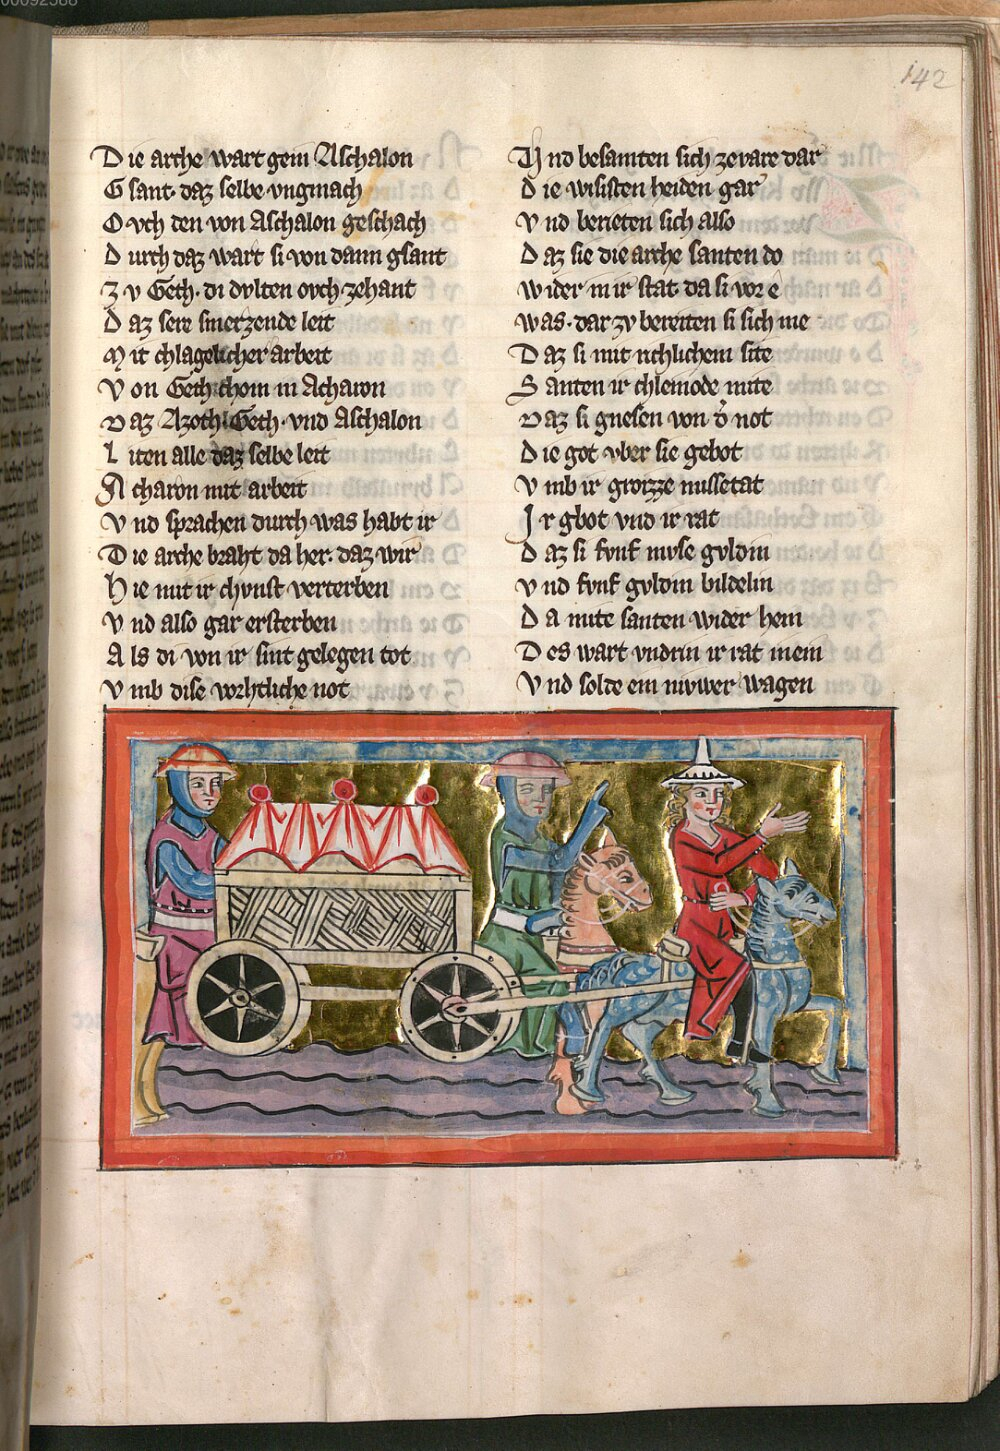 142
Die arche wart gein Aschalon
Gsant. daz selbe vngmach
Ovch den von Aschalon geschach
Durch daz wart si von dann gsant
Zv Geth. di dvlten ovch zehant
Daz sere smerzende leit
Mit chlagelicher arbeit
Von Geth chom in Acharon
Daz Azoth Geth. vnd Aschalon
Liten alle daz selbe leit
Acharon mit arbeit
Vnd sprachen durch was habt ir
Die arche braht da her. daz wir
Hie mit ir chvnft verterben
Vnd also gar ersterben
Als di von ir sint gelegen tot
Vmb dise vorhtliche not
Vnd besamten sich zevare dar
Die wisisten heiden gar
Vnd berieten sich also
Daz sie die arche santen do
Wider in ir stat da si vor ê
was. dar zv bereiten si sich me
Daz si mit richlichem site
Santen ir chleinode mite
Daz si gnesen von d̕ not
Die got vber sie gebot
Vmb ir groizze missetat
Ir gbot vnd ir rat
Daz si fvnf mvse gvldin
Vnd fvnf gvldin bildelin
Da mite santen wider hein
Des wart vndrin ir rat inein
Vnd solde ein nivwer wagen